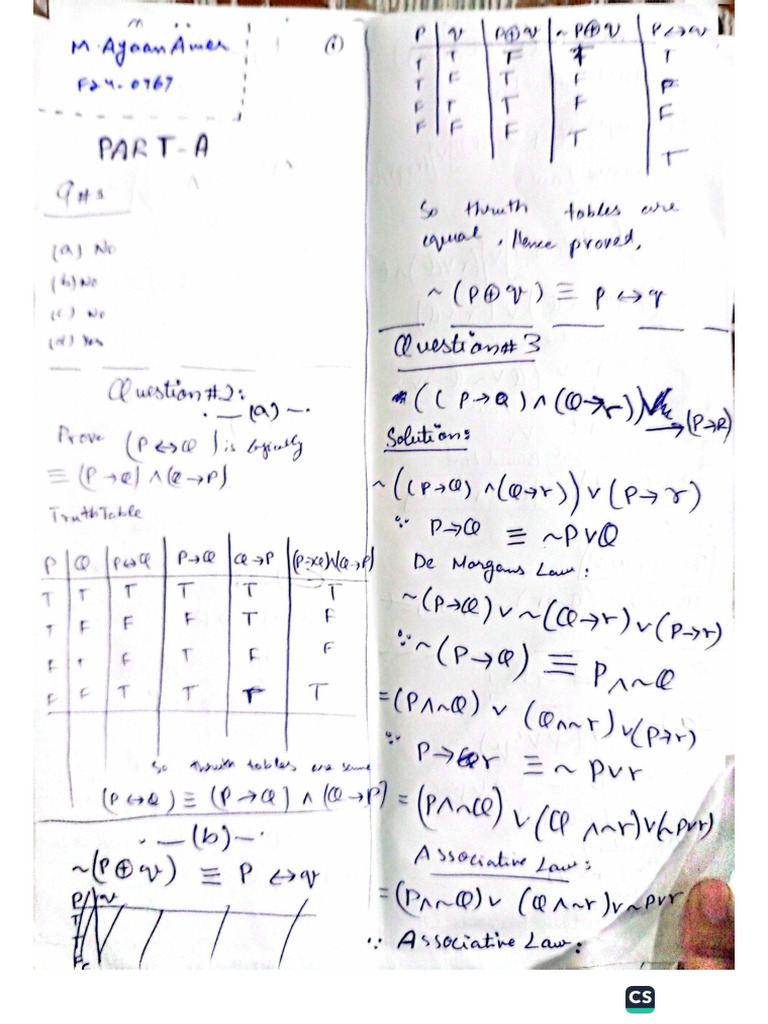 M. Ayaan Amer
F24-0767
(1)
PART-A
Q#1
(a) No
(b) No
(c) No
(d) Yes
Question#2:
. —(a)— .
Prove (P↔Q) is logically
≡ (P→Q) ∧ (Q→P)
Truth Table
P | Q | P↔Q | P→Q | Q→P | (P→Q)∧(Q→P)
T | T | T | T | T | T
T | F | F | F | T | F
F | T | F | T | F | F
F | F | T | T | T | T
So thruth tables are same
(P↔Q) ≡ (P→Q) ∧ (Q→P)
. —(b)— .
~(P⊕q) ≡ P ↔ q
P | q | P⊕q | ~P⊕q | P↔q
T | T | F | T | T
T | F | T | F | F
F | T | T | F | F
F | F | F | T | T
So thruth tables are
equal, Hence proved,
~(P⊕q) ≡ P ↔ q
Question#3
((P→Q) ∧ (Q→r)) → (P→R)
Solution:
~((P→Q) ∧ (Q→r)) ∨ (P→r)
∵ P→Q ≡ ~P∨Q
De Morgans Law:
~(P→Q) ∨ ~(Q→r) ∨ (P→r)
∵ ~(P→Q) ≡ P∧~Q
= (P∧~Q) ∨ (Q∧~r) ∨ (P→r)
∵ P→r ≡ ~P∨r
= (P∧~Q) ∨ (Q∧~r) ∨ (~P∨r)
Associative Law:
= (P∧~Q) ∨ (Q∧~r) ∨ ~P∨r
∵ Associative Law:
CS